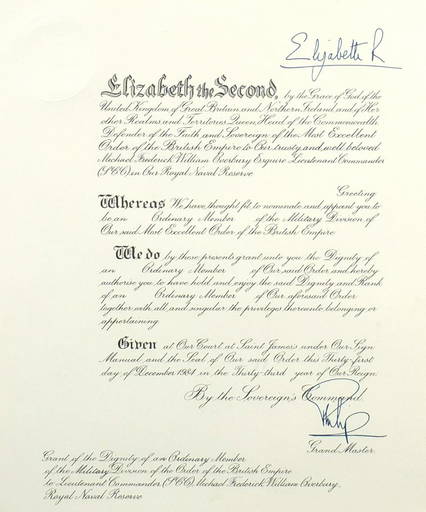 Elizabeth R
Elizabeth the Second, by the Grace of God of the
United Kingdom of Great Britain and Northern Ireland and of Her
other Realms and Territories Queen, Head of the Commonwealth,
Defender of the Faith and Sovereign of the Most Excellent
Order of the British Empire to Our trusty and well beloved
Michael Frederick William Overbury Esquire Lieutenant Commander
(SCC) in Our Royal Naval Reserve
Greeting
Whereas We have thought fit to nominate and appoint you to
be an Ordinary Member of the Military Division of
Our said Most Excellent Order of the British Empire
We do by these presents grant unto you the Dignity of
an Ordinary Member of Our said Order and hereby
authorise you to have hold and enjoy the said Dignity and Rank
of an Ordinary Member of Our aforesaid Order
together with all and singular the privileges thereunto belonging or
appertaining
Given at Our Court at Saint James's under Our Sign
Manual and the Seal of Our said Order this Thirty-first
day of December 1984 in the Thirty-third year of Our Reign.
By the Sovereign's Command.
Philip
Grand Master.
Grant of the Dignity of an Ordinary Member
of the Military Division of the Order of the British Empire
to Lieutenant Commander (SCC) Michael Frederick William Overbury,
Royal Naval Reserve